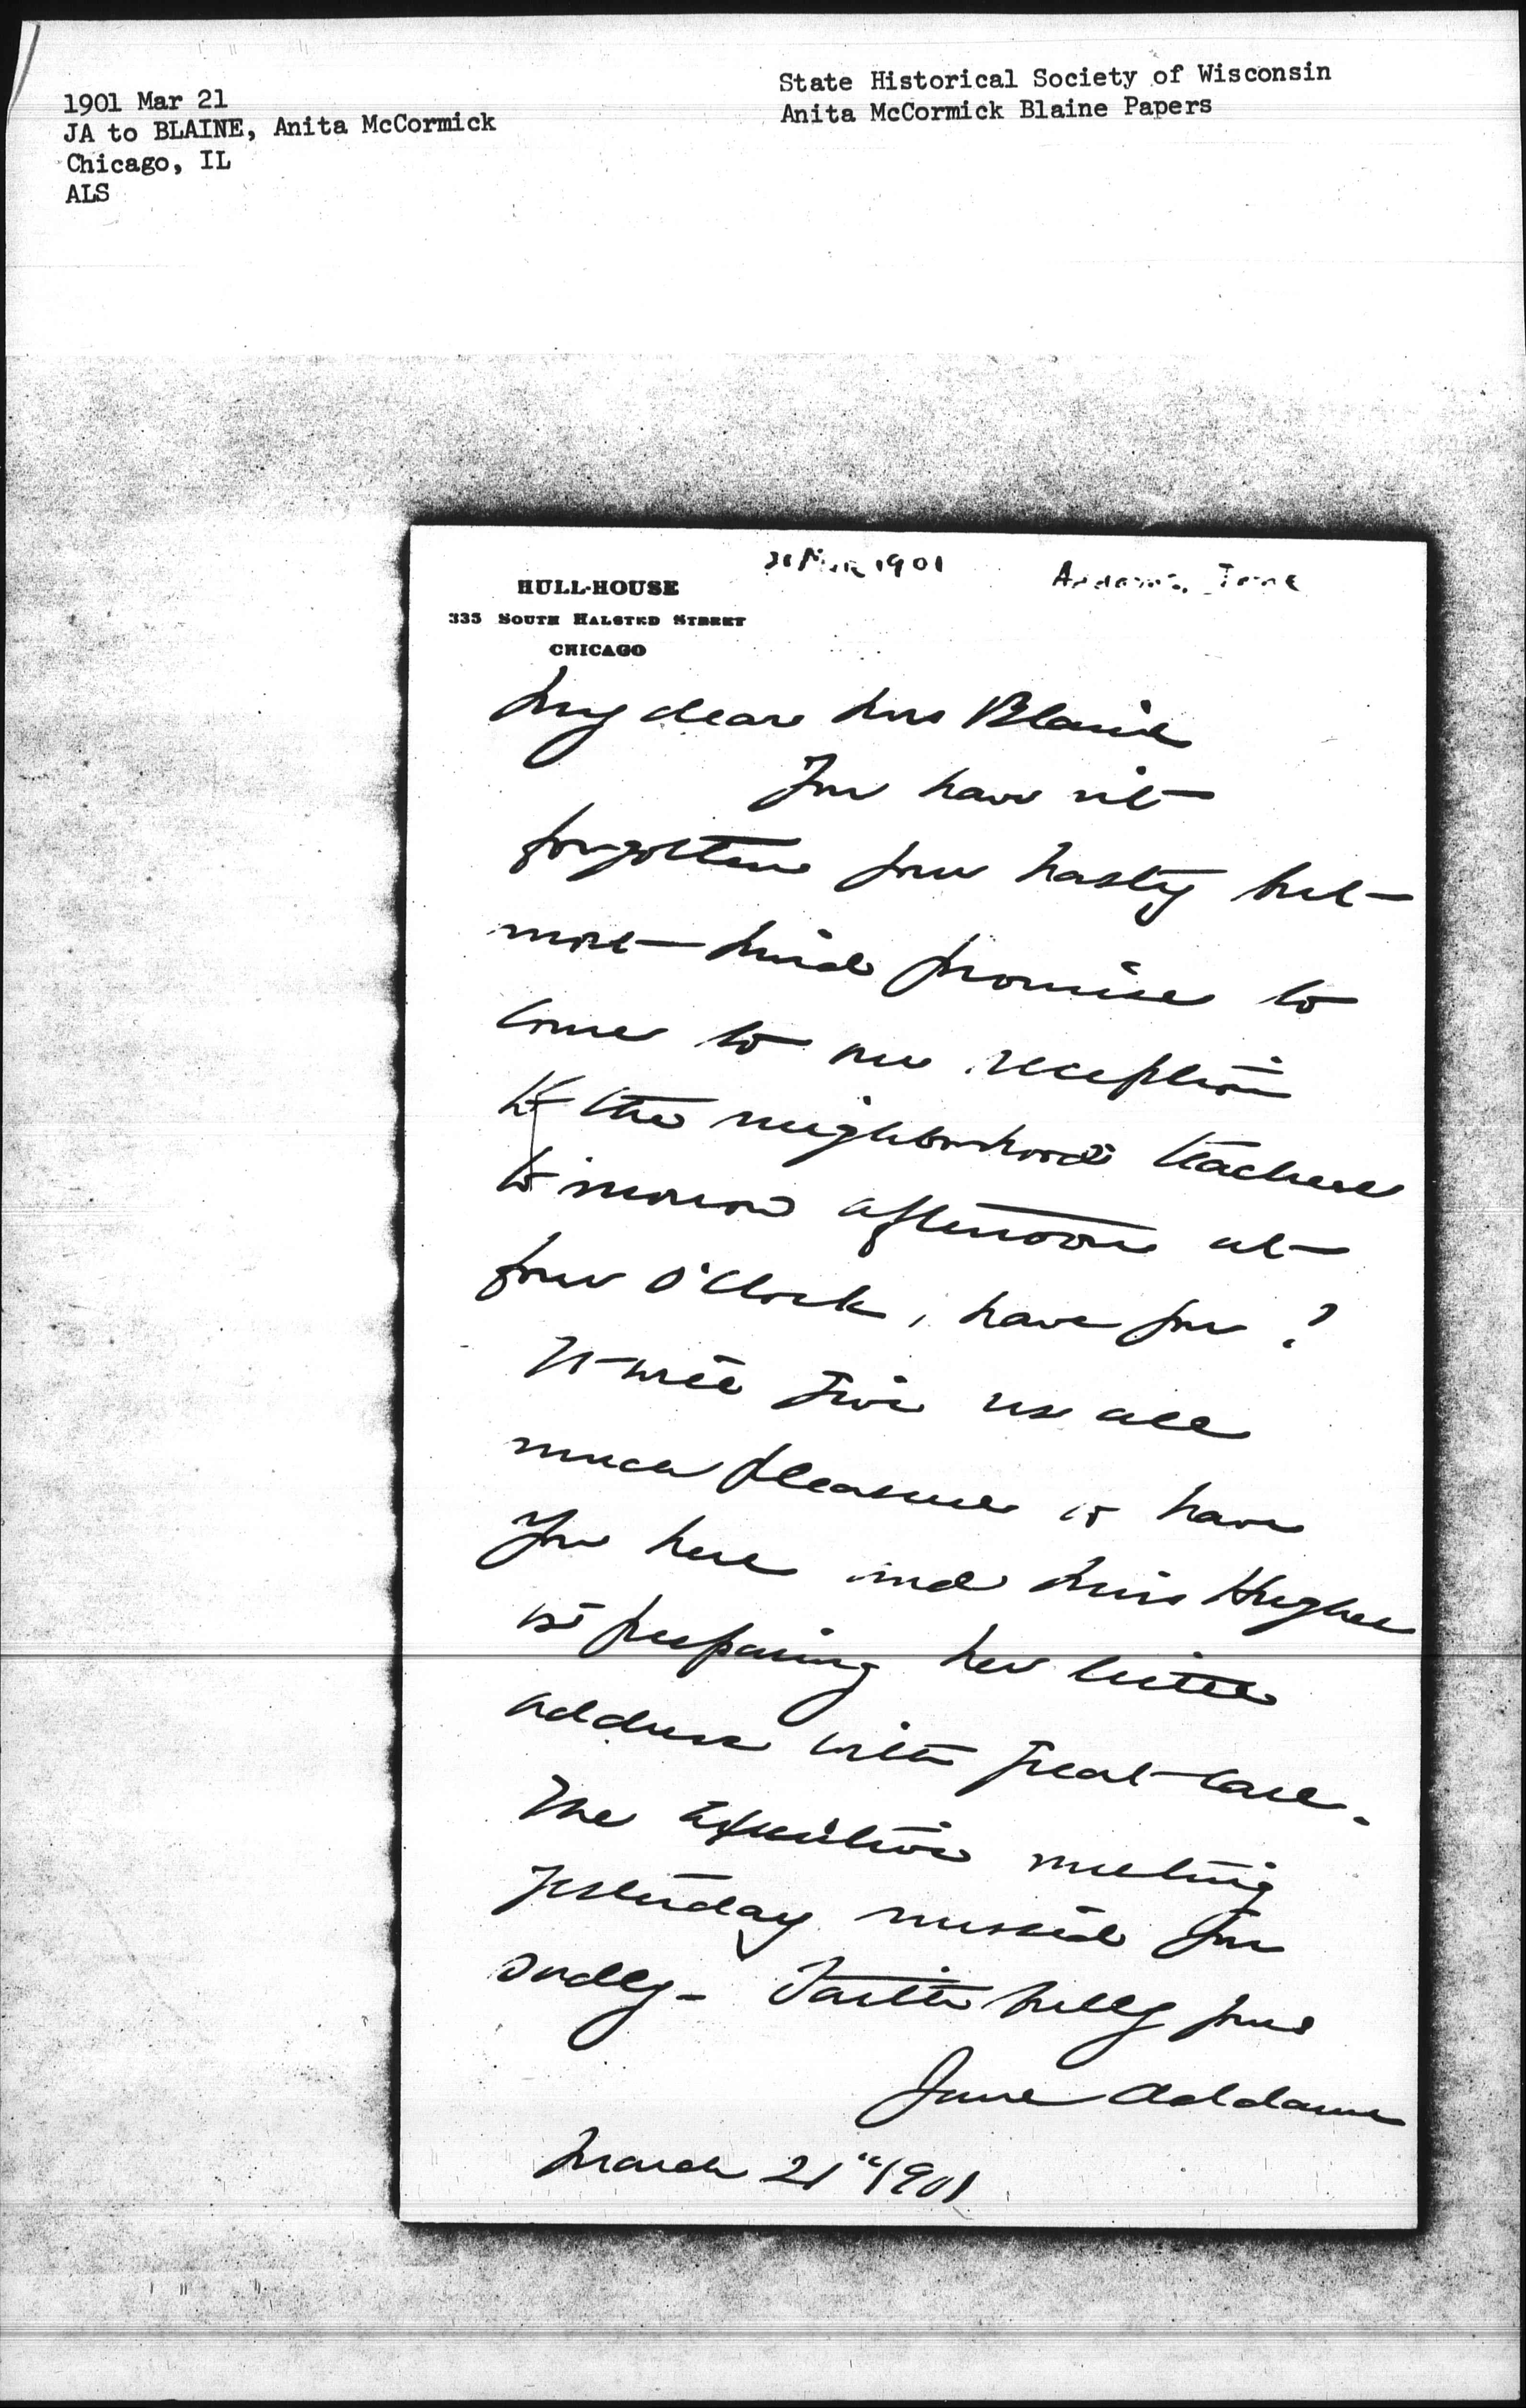 1901 Mar 21
JA to BLAINE, Anita McCormick
Chicago, IL
ALS
State Historical Society of Wisconsin
Anita McCormick Blaine Papers
21 Mar 1901
Addams, Jane
HULL-HOUSE
335 SOUTH HALSTED STREET
CHICAGO
My dear Mrs Blaine
You have not
forgotten your hasty but
most kind promise to
come to our reception
to the neighborhood teachers
tomorrow afternoon at
four o'clock, have you?
It will give us all
much pleasure to have
you here and Miss Hughes
is preparing her little
address with great care.
The executive meeting
yesterday missed you
sadly - Faithfully yours
Jane Addams
March 21" 1901